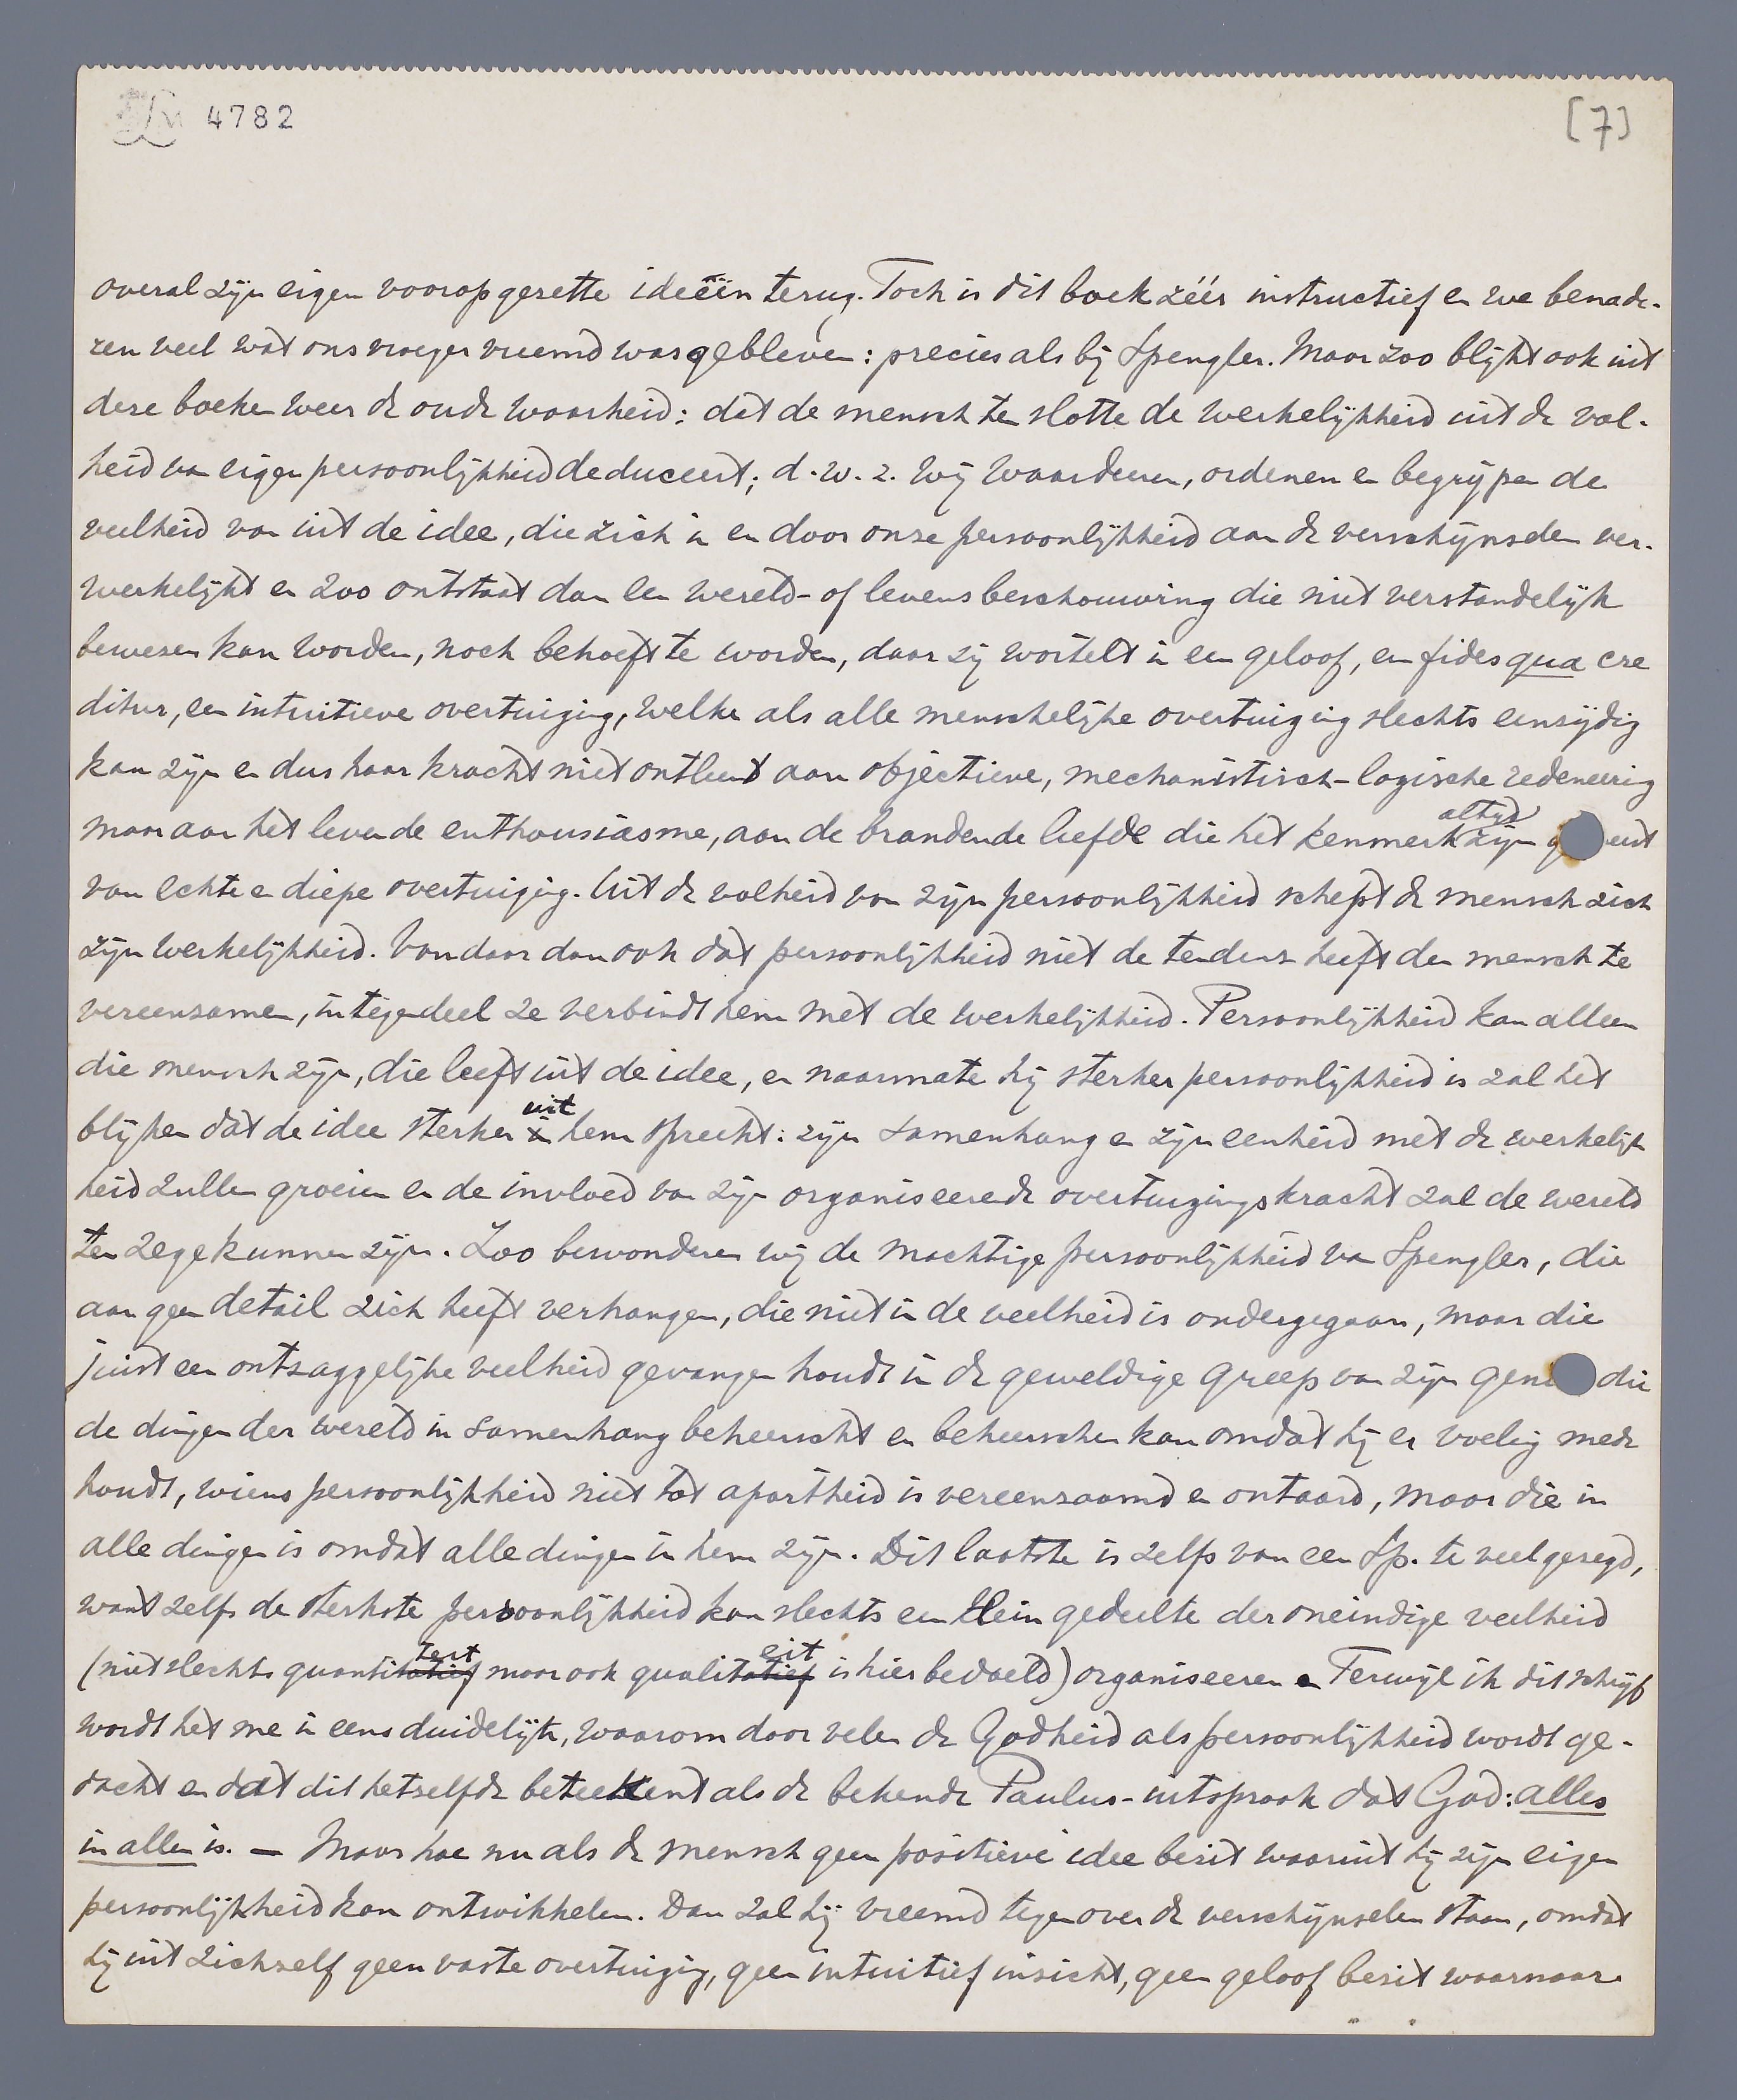 LM 4782
[7]
overal zijn eigen vooropgezette ideeën terug. Toch is dit boek zéér instructief en we benade-
ren veel wat ons vroeger vreemd was gebleven: precies als bij Spengler. Maar zoo blijkt ook uit
deze boeken weer de oude waarheid: dat de mensch ten slotte de werkelijkheid uit de vol-
heid van eigen persoonlijkheid deduceert; d.w.z. wij waardeeren, ordenen en begrijpen de
veelheid van uit de idee, die zich in en door onze persoonlijkheid aan de verschijnselen ver-
werkelijkt en zoo ontstaat dan een wereld- of levensbeschouwing die niet verstandelijk
bewezen kan worden, noch behoeft te worden, daar zij wortelt in een geloof, een fides qua cre
ditur, een intuitieve overtuiging, welke als alle menschelijke overtuiging slechts eenzijdig
kan zijn en dus haar kracht niet ontleent aan objectieve, mechanistisch-logische redeneering
maar aan het levende enthousiasme, aan de brandende liefde die het kenmerk altijd zijn g eest
van echte en diepe overtuiging. Uit de volheid van zijn persoonlijkheid schept de mensch zich
zijn werkelijkheid. Vandaar dan ook dat persoonlijkheid niet de tendenz heeft den mensch te
vereenzamen, integendeel ze verbindt hem met de werkelijkheid. Persoonlijkheid kan alleen
die mensch zijn, die leeft uit de idee, en naarmate hij sterker persoonlijkheid is zal het
blijken dat de idee sterker uit hem spreekt: zijn samenhang en zijn eenheid met de werkelijk
heid zullen groeien en de invloed van zijn organiseerende overtuigingskracht zal de wereld
ten zege kunnen zijn. Zoo bewonderen wij de machtige persoonlijkheid van Spengler, die
aan geen detail zich heeft verhangen, die niet in de veelheid is ondergegaan, maar die
juist een ontzaggelijke veelheid gevangen houdt in de geweldige greep van zijn geni die
de dingen der wereld in samenhang beheerscht en beheerschen kan omdat hij er voeling mede
houdt, wiens persoonlijkheid niet tot apartheid is vereenzaamd en ontaard, maar die in
alle dingen is omdat alle dingen in hem zijn. Dit laatste is zelfs van een Sp. te veel gezegd,
want zelfs de sterkste persoonlijkheid kan slechts een klein gedeelte der oneindige veelheid
(niet slechts quantiteit maar ook qualiteit is hier bedoeld) organiseeren. Terwijl ik dit schrijf
wordt het me in eens duidelijk, waarom door velen de Godheid als persoonlijkheid wordt ge-
dacht en dat dit hetzelfde beteekent als de bekende Paulus-uitspraak dat God: alles
in allen is. — Maar hoe nu als de mensch geen positieve idee bezit waaruit hij zijn eigen
persoonlijkheid kan ontwikkelen. Dan zal hij vreemd tegenover de verschijnselen staan, omdat
hij uit zichzelf geen vaste overtuiging, geen intuitief inzicht, geen geloof bezit waarnaar